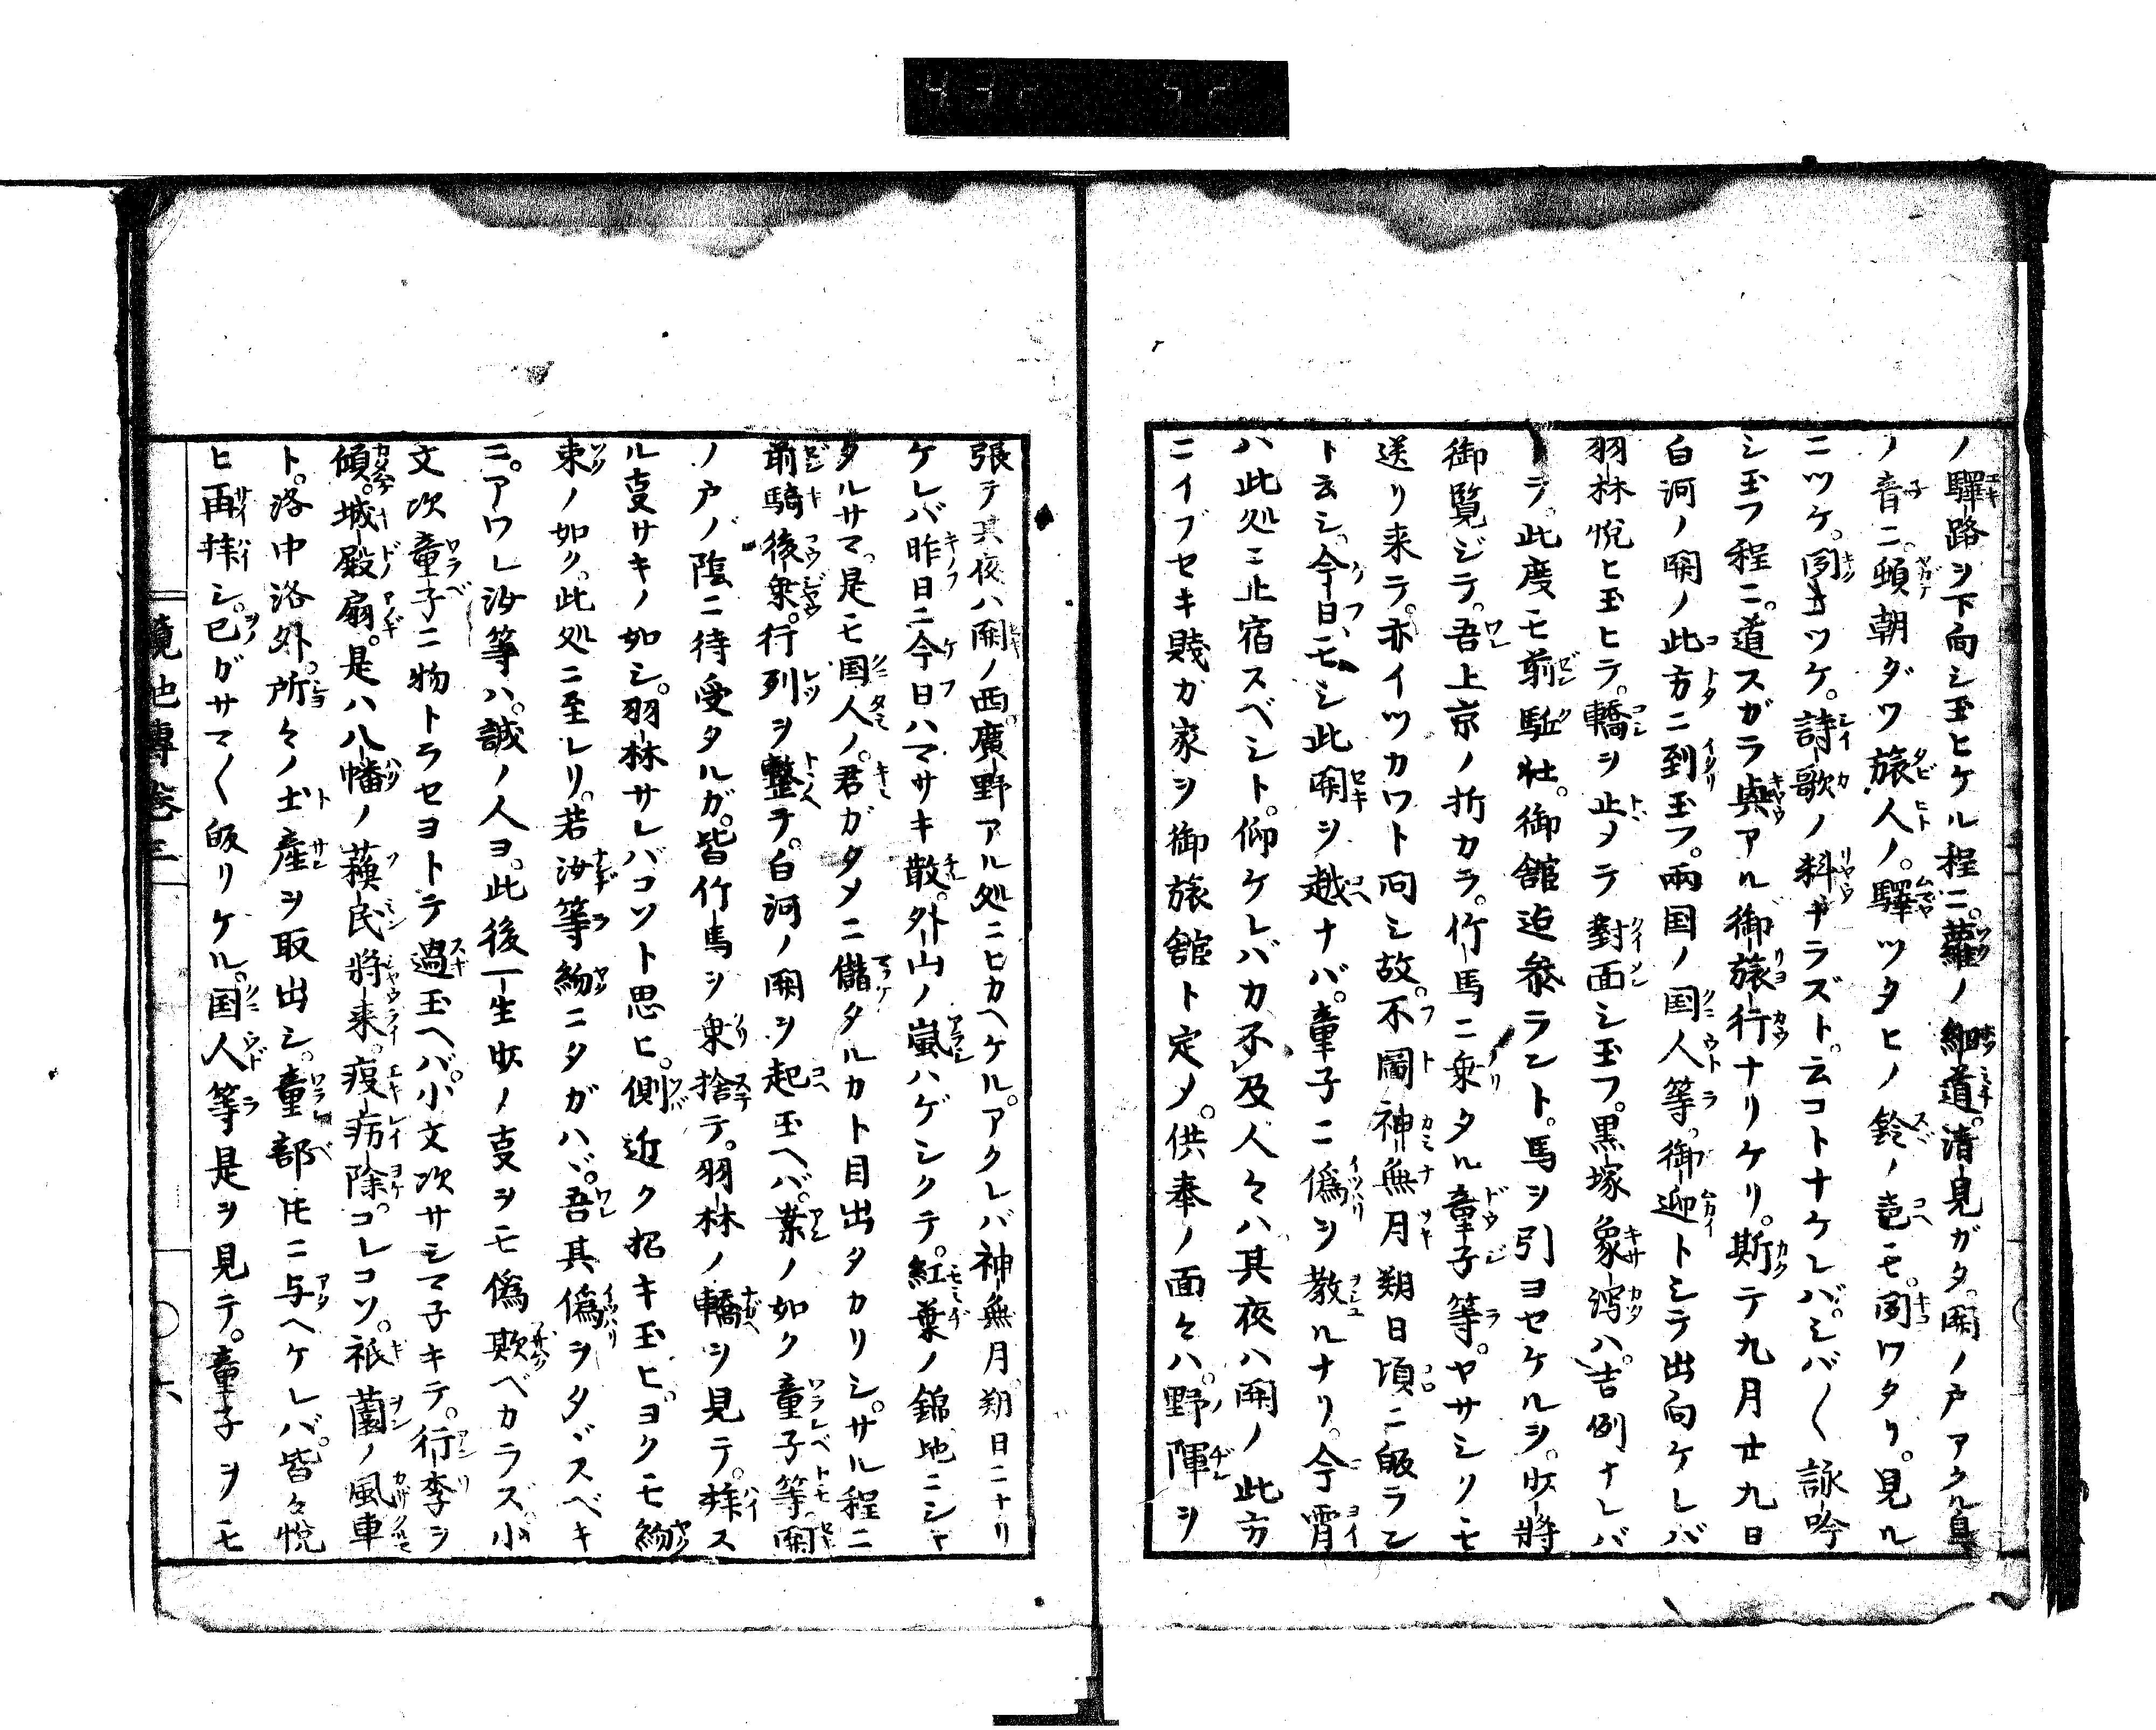 ノ驛路ヲ下向シ玉ヒケル程ニ。蘿ノ細道。清見ガタ。関ノ戸アクル鳥
ノ音ニ。頓朝ダツ旅人ノ。驛ツタヒノ鈴ノ声モ。聞ワタリ。見ル
ニツケ。聞キツケ。詩歌ノ料ナラズト。云コトナケレバ。シバ〱詠吟
シ玉フ程ニ。道スガラ興アル御旅行ナリケリ。斯テ九月廿九日
白河ノ関ノ此方ニ到玉フ。兩国ノ国人等。御迎トシテ出向ケレバ
羽林悦ヒ玉ヒテ。轎ヲ止メテ對面シ玉フ。黒塚象潟ハ。吉例ナレバ
トテ。此度モ前駈壮。御舘迠参ラント。馬ヲ引ヨセケルヲ。少將
御覧ジテ。吾上京ノ折カラ。竹馬ニ乗タル童子等。ヤサシクモ
送リ来テ。亦イツカワト問シ故。不圖神無月朔日頃ニ皈ラン
ト云シ。今日モシ此関ヲ越ナバ。童子ニ偽ヲ教ルナリ。今霄
ハ此処ニ止宿スベシト。仰ケレバ力不及人々ハ其夜ハ関ノ此方
ニイブセキ賎カ家ヲ御旅舘ト定メ。供奉ノ面々ハ。野陣ヲ
張テ其夜ハ関ノ西廣野アル処ニヒカヘケル。アクレバ神無月。朔日ニナリ
ケレバ昨日ニ今日ハマサキ散。外山ノ嵐ハゲシクテ。紅葉ノ錦。地ニシヤ
タルサマ。是モ国人ノ。君ガタメニ儲タルカト目出タカリシ。サル程ニ
前騎後乗。行列ヲ整テ。白河ノ関ヲ起玉ヘバ。案ノ如ク童子等。関
ノ戸ノ陰ニ待受タルガ。皆竹馬ヲ乗捨テ。羽林ノ轎ヲ見テ。拜ス
ル叓サキノ如シ。羽林サレバコソト思ヒ。側近ク招キ玉ヒ。ヨクモ約
束ノ如ク。此処ニ至レリ。若汝等約ニタガハヾ。吾其偽ヲタヾスベキ
ニ。アワレ汝等ハ。誠ノ人ヨ。此後一生少ノ叓ヲモ偽欺ベカラズ。小
文次童子ニ物トラセヨトテ過玉ヘバ。小文次サシマ子キテ。行李ヲ
傾。城殿扇。是ハ八幡ノ蘓民將来。疫病除。コレコソ。祇薗ノ風車
ト。洛中洛外。所々ノ土産ヲ取出シ。童部𪜈ニ与ヘケレバ。皆々悦
ヒ再拜シ。已ガサマ〱皈リケル。国人等是ヲ見テ。童子ヲモ
傳卷三
六